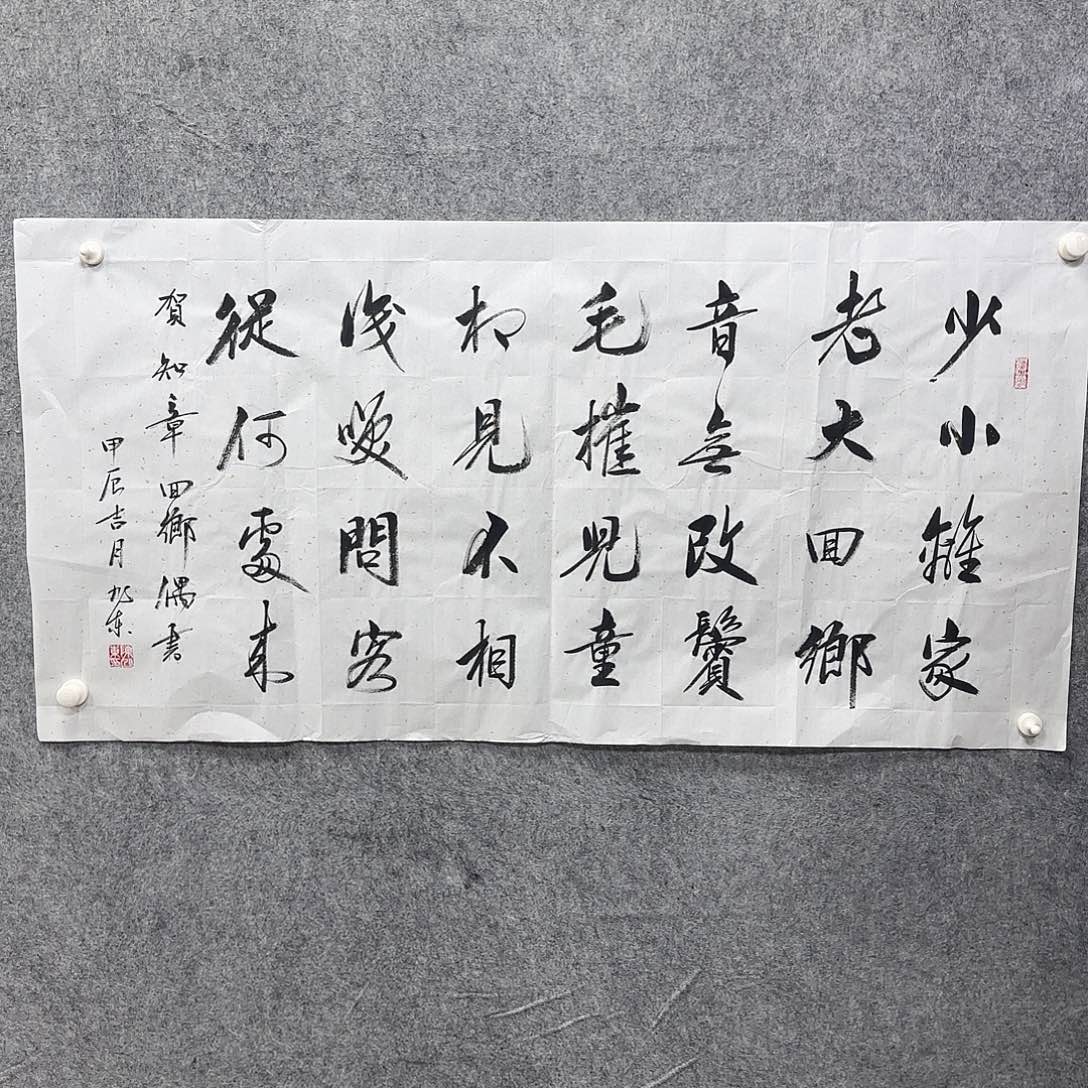 少小離家
老大回鄉
音無改鬢
毛摧兒童
相見不相
識咲問客
從何處來
賀知章回鄉偶書
甲辰吉月旭東